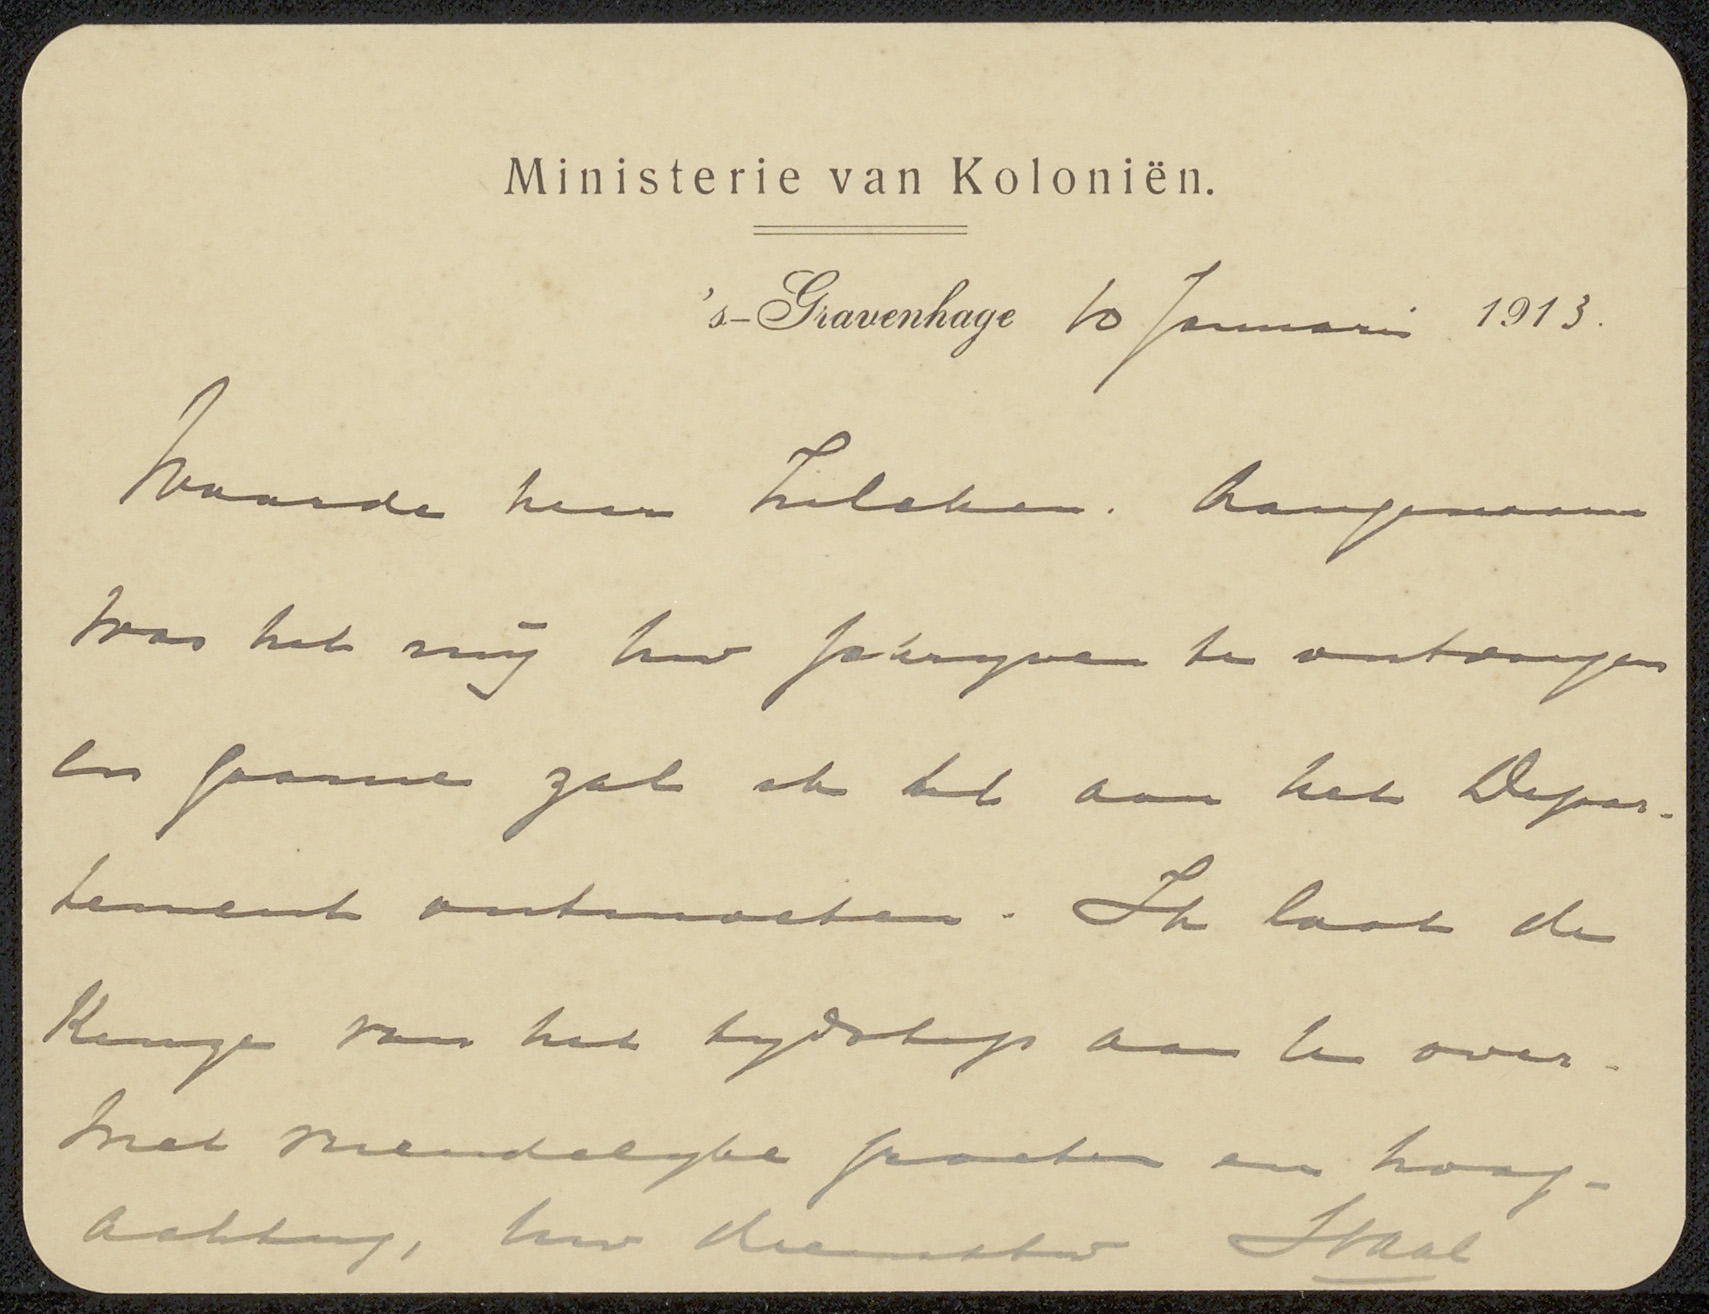 Ministerie van Koloniën.
's-Gravenhage 10 Januari 1913.
Waarde heer Zilcken. Aangenaam
was het mij uw schrijven te ontvangen
en gaarne zal ik U aan het Depar-
tement ontmoeten. Ik laat de
Keuze van het tijdstip aan U over.
Met vriendelijke groeten en hoog-
achting, uw dienstw Staal